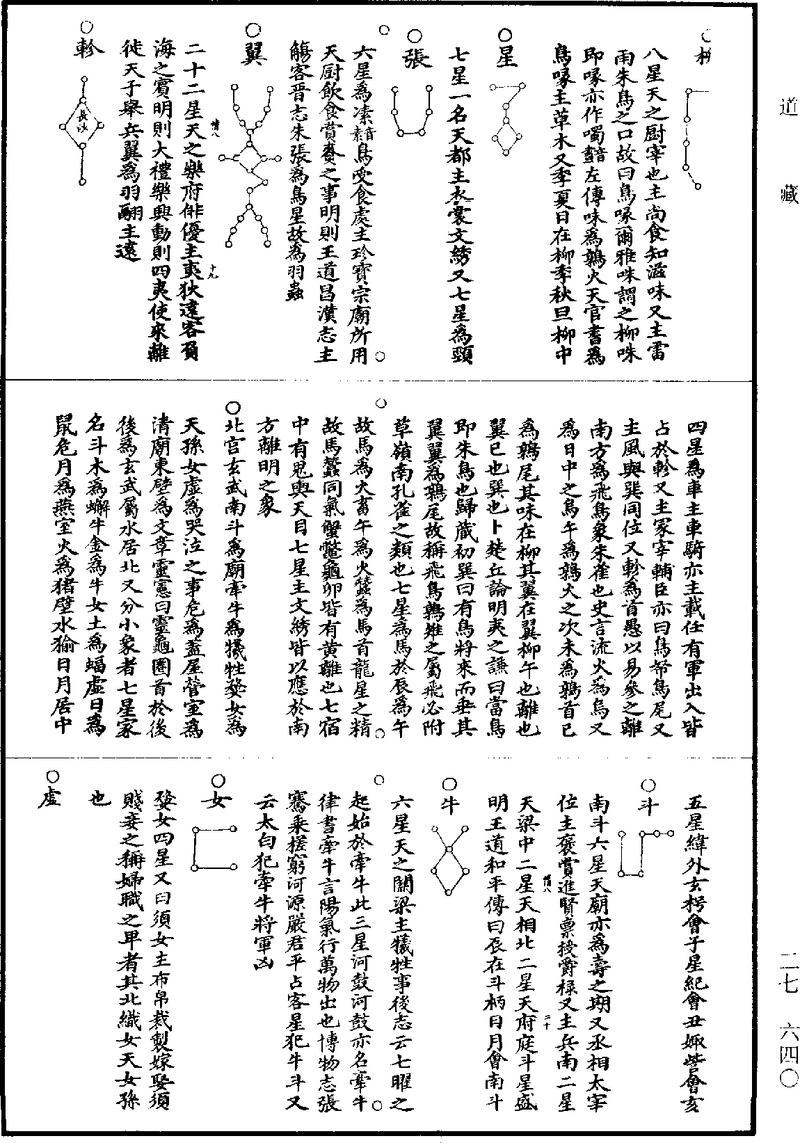 道藏
柳
八星天之厨宰也主尚食知滋味又主雷
雨朱鳥之口故曰鳥喙爾雅咮謂之柳咮
即喙亦作噣음左傳咮為鶉火天官書為
鳥喙主草木又季夏日在柳季秋旦柳中
星
七星一名天都主衣裳文綉又七星為頸
張
六星為嗉音素鳥受食處主珍寶宗廟所用
天厨飲食賞賚之事明則王道昌漢志主
觴客晉志朱張為鳥星故為羽蟲
翼
二十二星天之樂府俳優主夷狄遠客負
海之賓明則大禮樂興動則四夷使來離
徙天子舉兵翼為羽翮主遠
軫
長沙
四星為車主車騎亦主載任有軍出入皆
占於軫又主冢宰輔臣亦曰鳥帑鳥尾又
主風與巽同位又軫為首愚以易參之離
南方為飛鳥象朱雀也史言流火為烏又
為日中之烏午為鶉火之次未為鶉首巳
為鶉尾其咮在柳其翼在翼柳午也離也
翼巳也巽也卜楚丘論明夷之謙曰當鳥
即朱鳥也歸藏初巽曰有鳥將來而垂其
翼翼為鶉尾故稱飛鳥鶉雉之屬飛必附
草嶺南孔雀之類也七星為馬於辰為午
故馬為火畜午為火蠶為馬首龍星之精
故馬蠶同氣蟹鼈龜卯皆有黃離也七宿
中有鬼輿天目七星主文綉皆以應於南
方離明之象
北宮玄武南斗為廟牽牛為犧牲婺女為
天孫女虛為哭泣之事危為蓋屋營室為
清廟東壁為文章靈憲曰靈龜圈首於後
後為玄武屬水居北又分小象者七星家
名斗木為蠏牛金為牛女土為蝠虛日為
鼠危月為燕室火為猪壁水貐日月居中
五星緯外玄枵會子星紀會丑娵訾會亥
斗
南斗六星天廟亦為壽之期又丞相太宰
位主褒賞進賢禀授爵祿又主兵南二星
天梁中二星天相北二星天府庭斗星盛
明王道和平傳曰辰在斗柄日月會南斗
牛
六星天之關梁主犧牲事後志云七曜之
起始於牽牛此三星河鼓河鼓亦名牽牛
律書牽牛言陽氣行萬物出也博物志張
騫乘槎窮河源嚴君平占客星犯牛斗又
云太白犯牽牛將軍凶
女
婺女四星又曰須女主布帛裁製嫁娶須
賤妾之稱婦職之卑者其北織女天女孫
也
虛
二七 六四〇